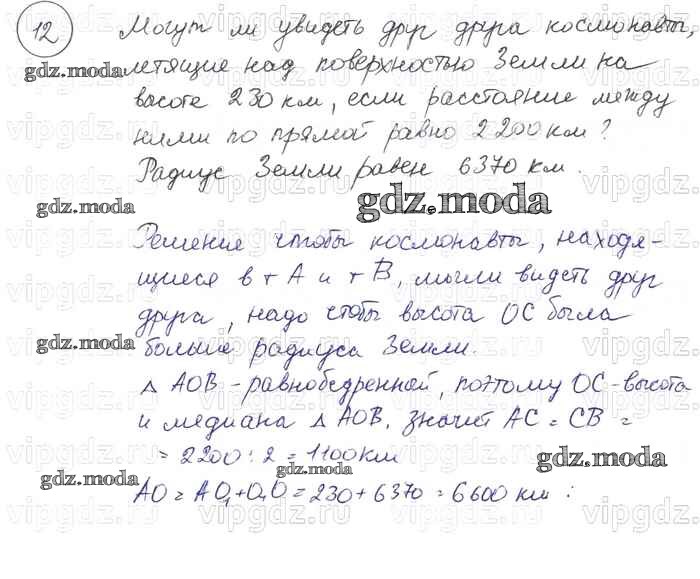 12 Могут ли увидеть друг друга космонавты,
летящие над поверхностью Земли на
высоте 230 км, если расстояние между
ними по прямой равно 2200 км?
Радиус Земли равен 6370 км.
Решение чтобы космонавты, находя-
щиеся в т А и т В, могли видеть друг
друга, надо чтобы высота ОС была
больше радиуса Земли.
△ АОВ - равнобедренный, поэтому ОС - высота
и медиана △ АОВ, значит АС = СВ =
= 2200 : 2 = 1100 км
АО = АО₁ + О₁О = 230 + 6370 = 6600 км :
gdz.moda
gdz.moda
gdz.moda
gdz.moda
gdz.moda
gdz.moda
gdz.moda
gdz.moda
vipgdz.moda